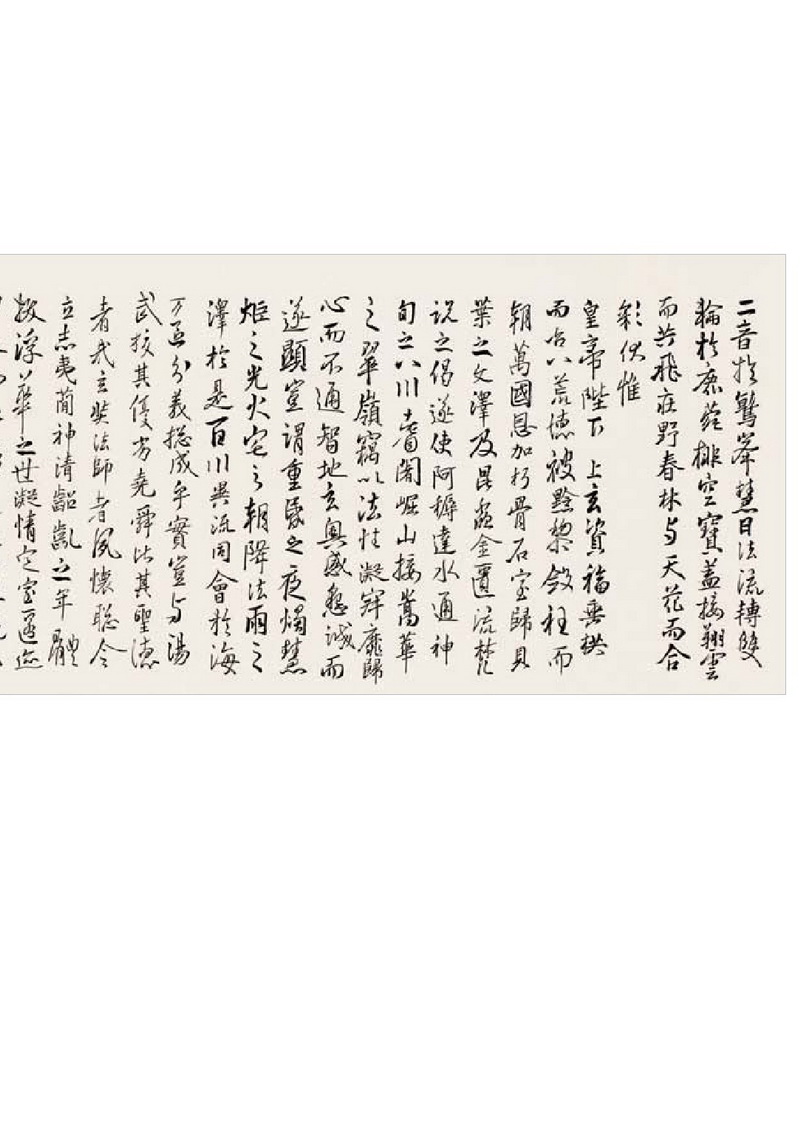 二音於鷲峯慧日法流轉雙
輪於鹿菀排空寶蓋接翔雲
而共飛莊野春林与天花而合
彩伏惟
皇帝陛下上玄資福垂拱
而治八荒德被黔黎斂衽而
朝萬國恩加朽骨石室歸貝
葉之文澤及昆蟲金匱流梵
說之偈遂使阿耨達水通神
甸之八川耆闍崛山接嵩華
之翠嶺竊以法性凝寂靡歸
心而不通智地玄奧感懇誠而
遂顯豈謂重昏之夜燭慧
炬之光火宅之朝降法雨之
澤於是百川異流同會於海
万區分義總成乎實豈与湯
武挍其優劣堯舜比其聖德
者哉玄奘法師者夙懷聰令
立志夷簡神清齠齔之年體
拔浮華之世凝情定室匿迹